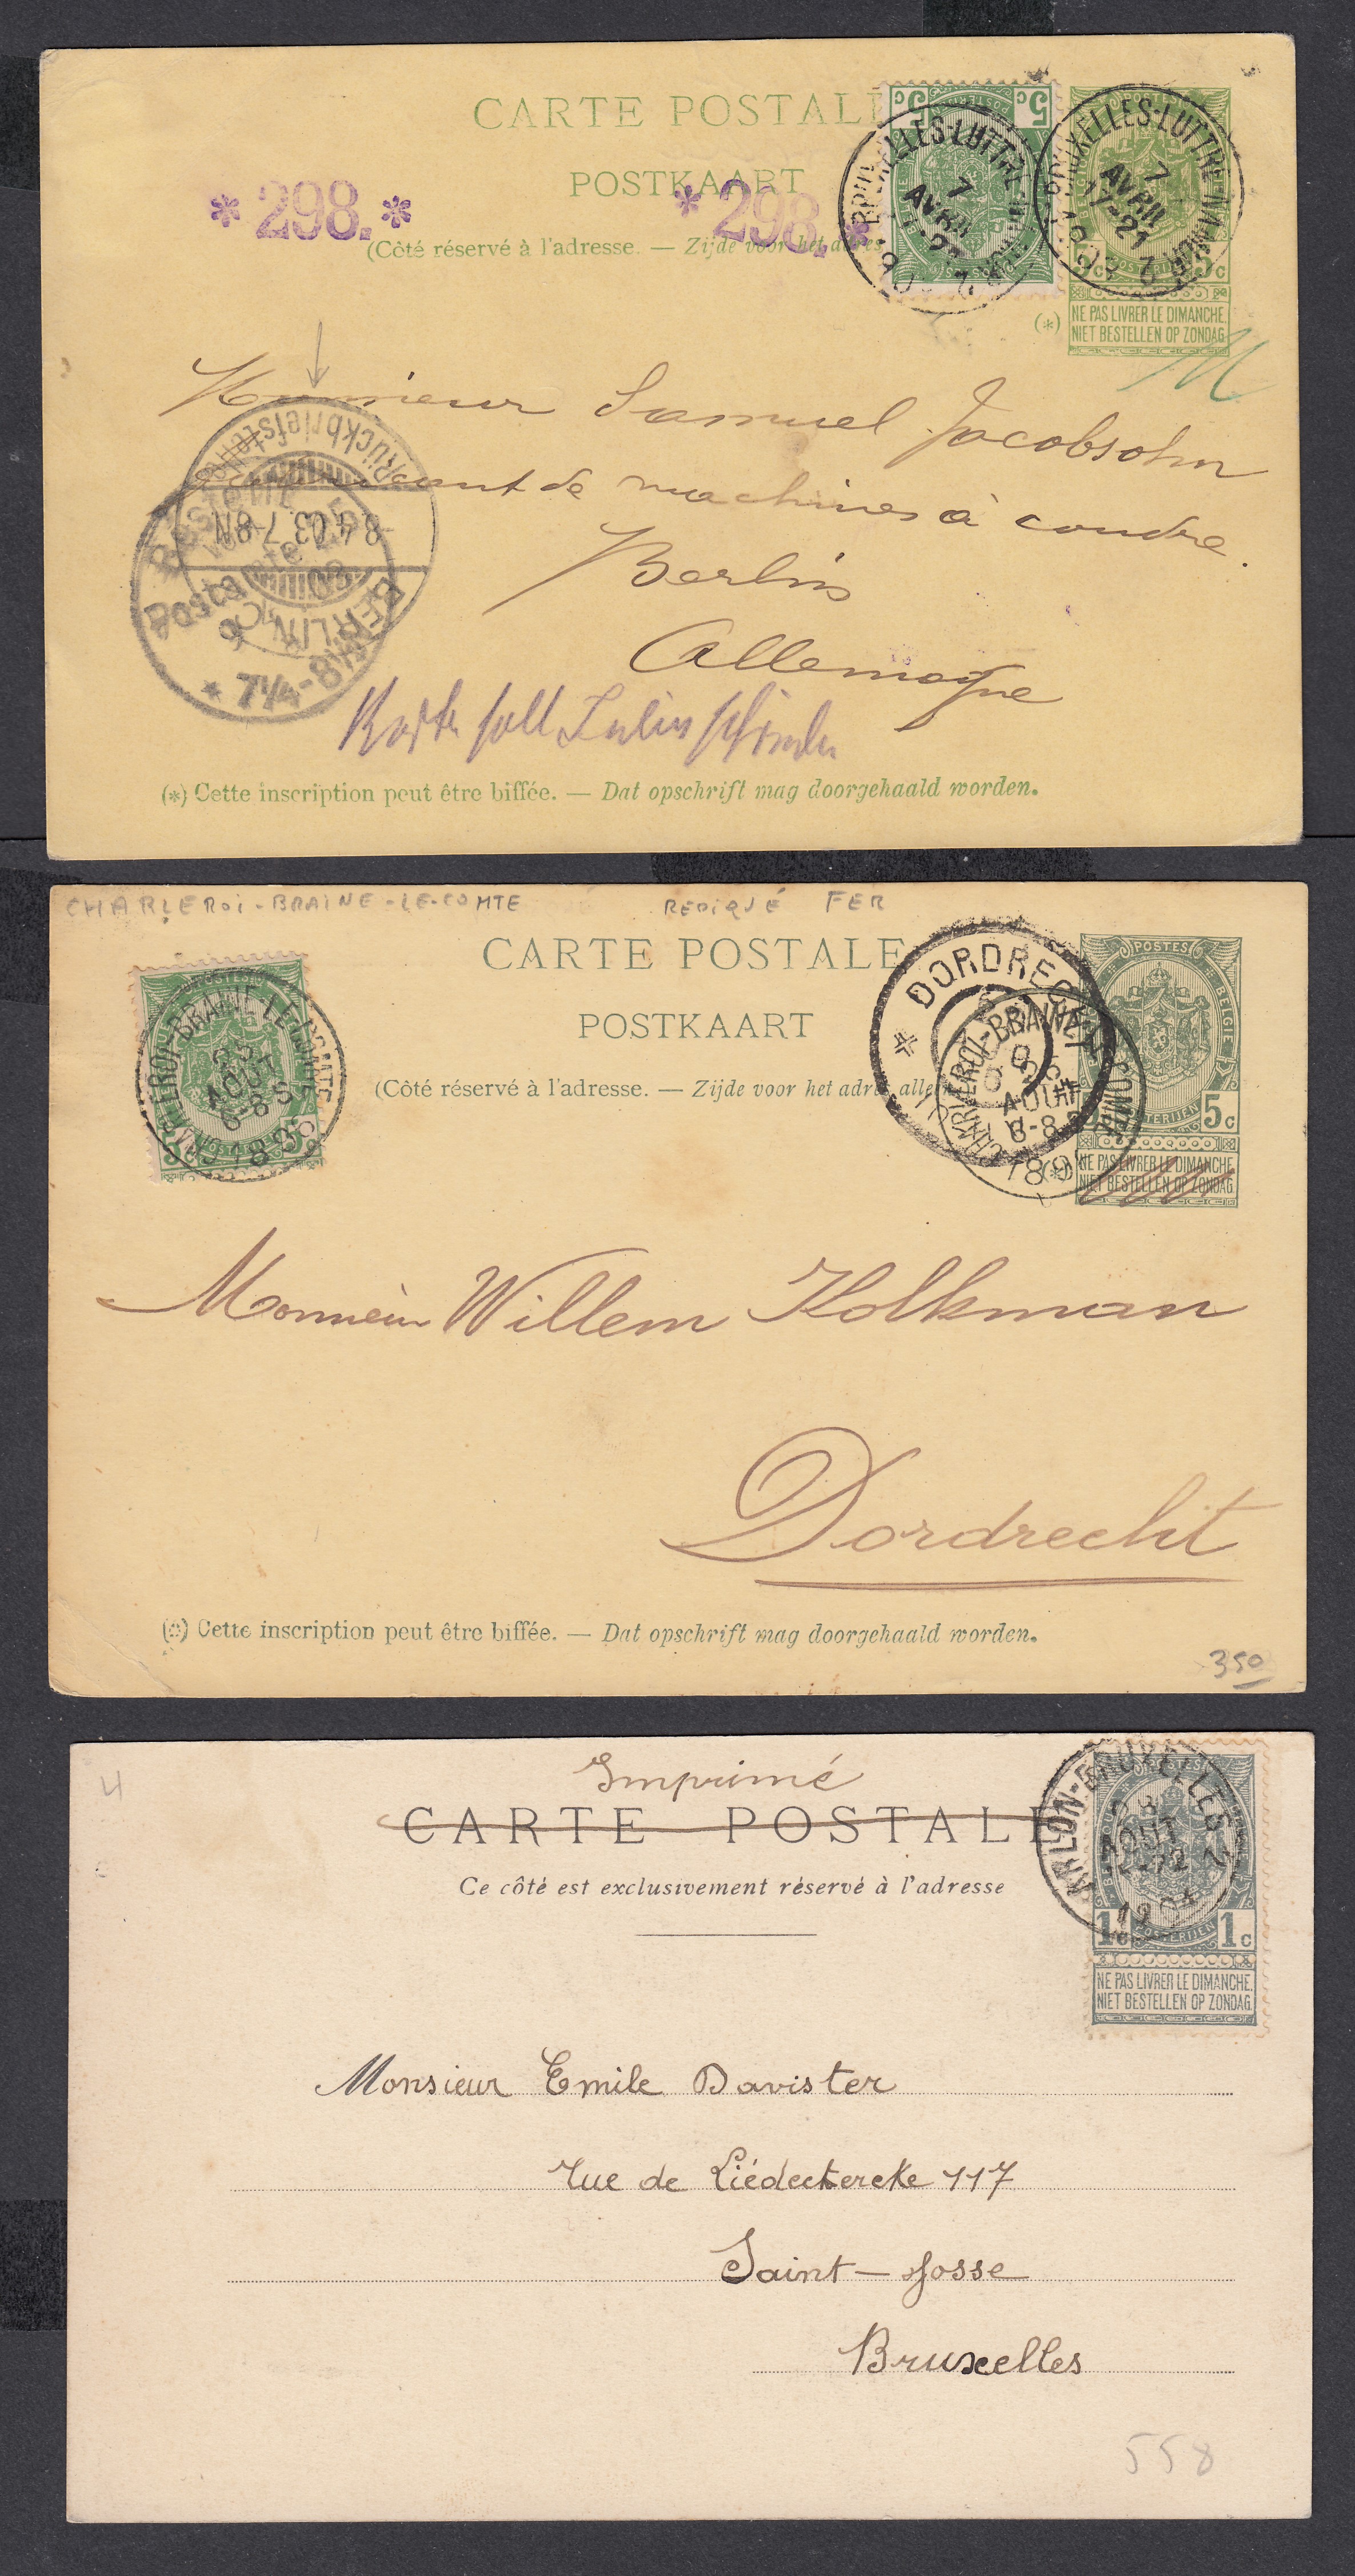 CARTE POSTALE
POSTKAART
(Côté réservé à l'adresse. — Zijde voor het adres
* 298. *
* 298. *
5c 5c
BRUXELLES-LUTTRE-NAMUR 2
7
AVRIL
17-21
1903
BRUXELLES-LUTTRE-NAMUR 2
7
AVRIL
17-21
1903
POSTES
5c 5c
(*)
NE PAS LIVRER LE DIMANCHE
NIET BESTELLEN OP ZONDAG
M
Monsieur Samuel Jacobsohn
de machines à coudre.
Berlin
Allemagne
Rückbriefstelle
8.4.03.7-8N.
BERLIN
Bestellt
vom
Postamte
* 7¼-8½N
Karte soll
(*) Cette inscription peut être biffée. — Dat opschrift mag doorgehaald worden.
CHARLEROI-BRAINE-LE-COMTE REDIQUÉ FER
CARTE POSTALE
POSTKAART
(Côté réservé à l'adresse. — Zijde voor het adres alleen
CHARLEROI-BRAINE-LE-COMTE
AOUT
6-8 S
189
DORDRECHT
CHARLEROI-BRAINE-LE-COMTE
AOUT
6-8 S
189
POSTES BELGIE
POSTERIJEN
5c
(*)
NE PAS LIVRER LE DIMANCHE
NIET BESTELLEN OP ZONDAG
Monsieur Willem Kolkman
Dordrecht
(*) Cette inscription peut être biffée. — Dat opschrift mag doorgehaald worden.
350
4
Imprimé
CARTE POSTALE
Ce côté est exclusivement réservé à l'adresse
ARLON-BRUXELLES 2
AOUT
1904
1c POSTERIJEN 1c
NE PAS LIVRER LE DIMANCHE
NIET BESTELLEN OP ZONDAG
Monsieur Emile Davister
rue de Liédeckercke 117
Saint-Josse
Bruxelles
558